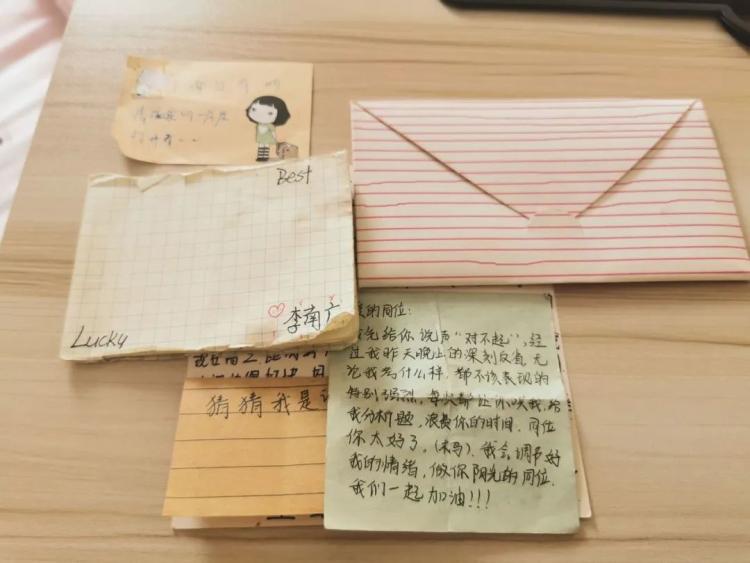 Best
李南广
Lucky
猜猜我是
的同位:
先给你说声“对不起”,经
过我昨天晚上的深刻反省,无
论我为什么样,都不该表现的
特别强烈,每次都让你哄我,给
我分析题,浪费你的时间.同位
你太好了,(木马).我会调节好
我的情绪,做你阳光的同位.
我们一起加油!!!